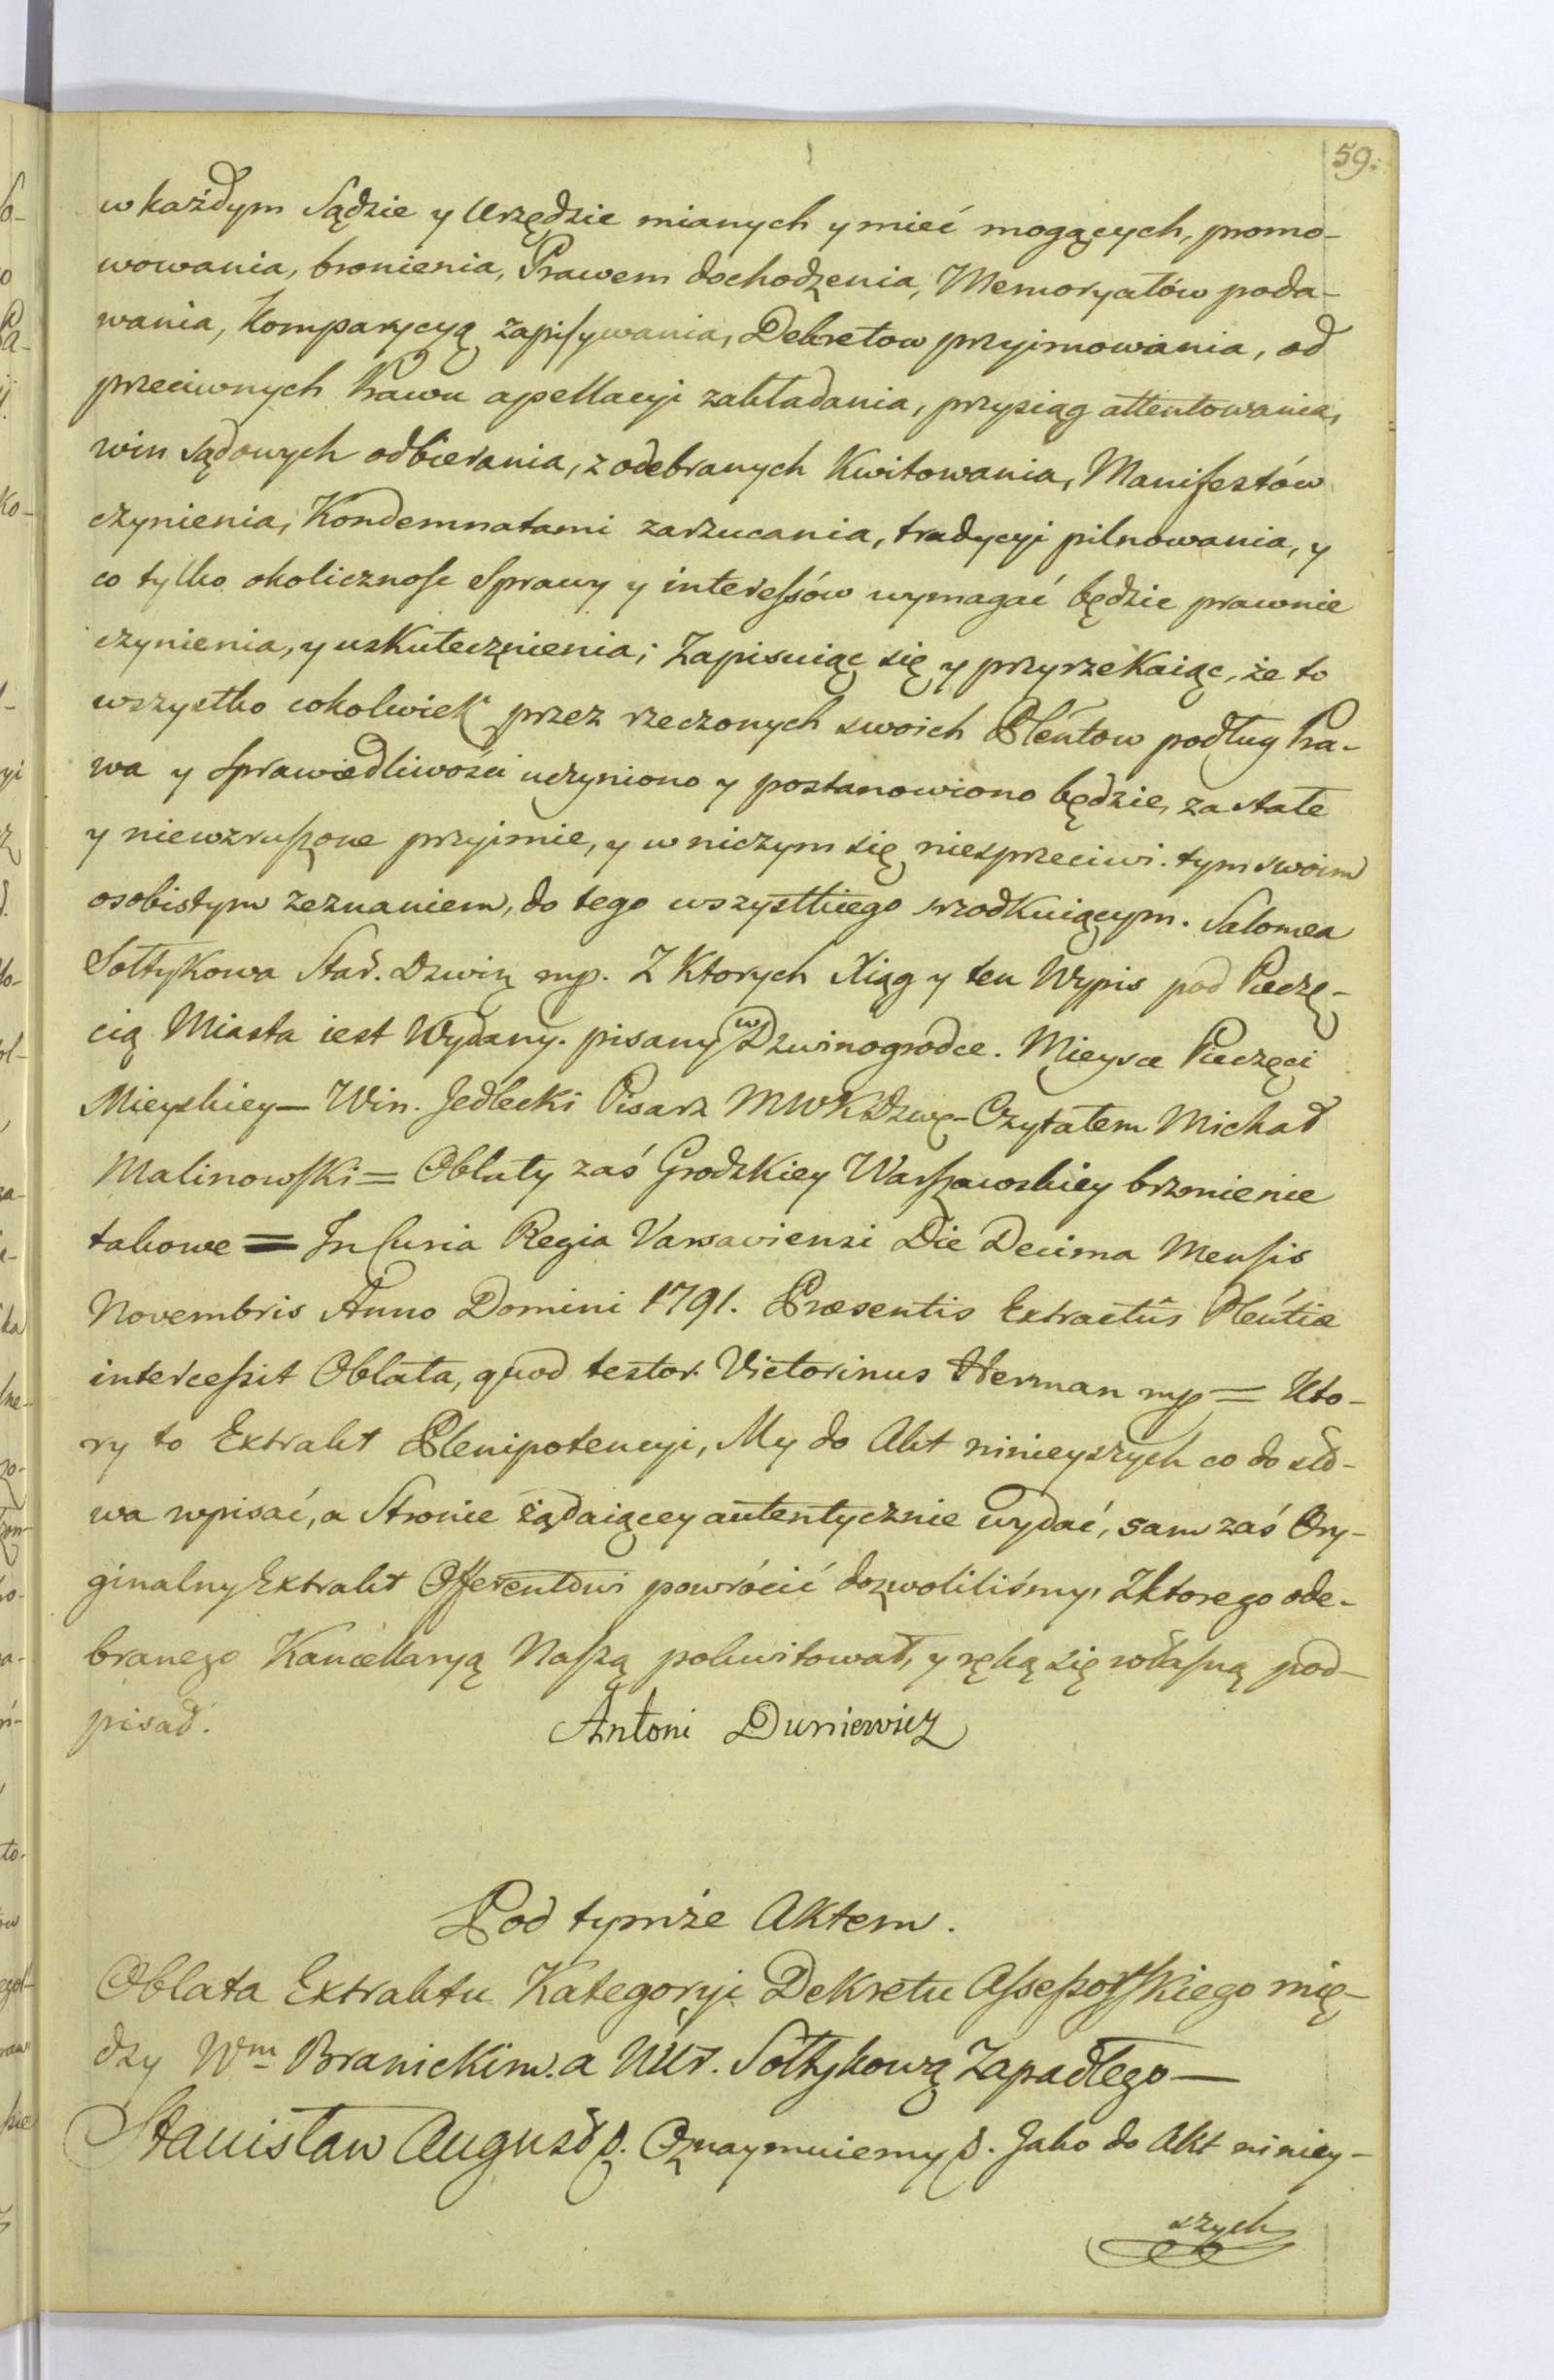 59.
w każdym Sądzie y Urzędzie mianych y mieć mogących, promo-
wowania, bronienia, Prawem dochodzenia, Memoryałów poda-
wania, Komparycyą zapisywania, Dekretow przyimowania, od
przeciwnych Prawu apellacyi zakładania, przysiąg attentowania,
win Sądowych odbierania, z odebranych Kwitowania, Manifestów
czynienia, Kondemnatami zarzucania, tradycyi pilnowania, y
co tylko okolicznosc Sprawy y interessów wymagać będzie prawnie
czynienia, y uskutecznienia; Zapisuiąc się y przyrzekaiąc, że to
wszystko cokolwiek przez rzeczonych swoich Plentow podług Pra-
wa y Sprawiedliwości uczyniono y postanowiono będzie, za stałe
y niewzruszone przyimie, y w niczym się niesprzeciwi. tym swoim
osobistym zeznaniem, do tego wszystkiego srzodkuiącym. Salomea
Sołtykowa Star. Dzwin mp. Z Ktorych Xiąg y ten Wypis pod Pieczę-
cią Miasta iest Wydany. pisany w Dzwinogrodce. Mieysce Pieczęci
Mieyskiey — Win. Jedlecki Pisarz MWKDzwg - Czytałem Michał
Malinowski = Oblaty zaś Grodzkiey Warszawskiey brzmienie
takowe = In Curia Regia Varsaviensi Die Decima Mensis
Novembris Anno Domini 1791. Præsentis Extractûs Pleńtiæ
intercessit Oblata, quod testor. Victorinus Herman mp = Kto-
ry to Extrakt Plenipotencyi, My do Akt ninieyszych co do sło-
wa wpisać, a Stronie żądaiącey autentycznie wydać, sam zaś Ory-
ginalny Extrakt Offerentowi powrócić dozwoliliśmy, Z ktorego ode-
branego Kancellaryą Naszą pokwitował, y ręką się własną pod-
pisał. Antoni Duniewicz
Pod tymże Aktem.
Oblata Extraktu Kategoryi Dekretu Assessorskiego mię-
dzy Wm Branickim. a Wur. Sołtykową Zapadłego —
Stanisław August Oznaymuiemy Jako do Akt niniey-
szych